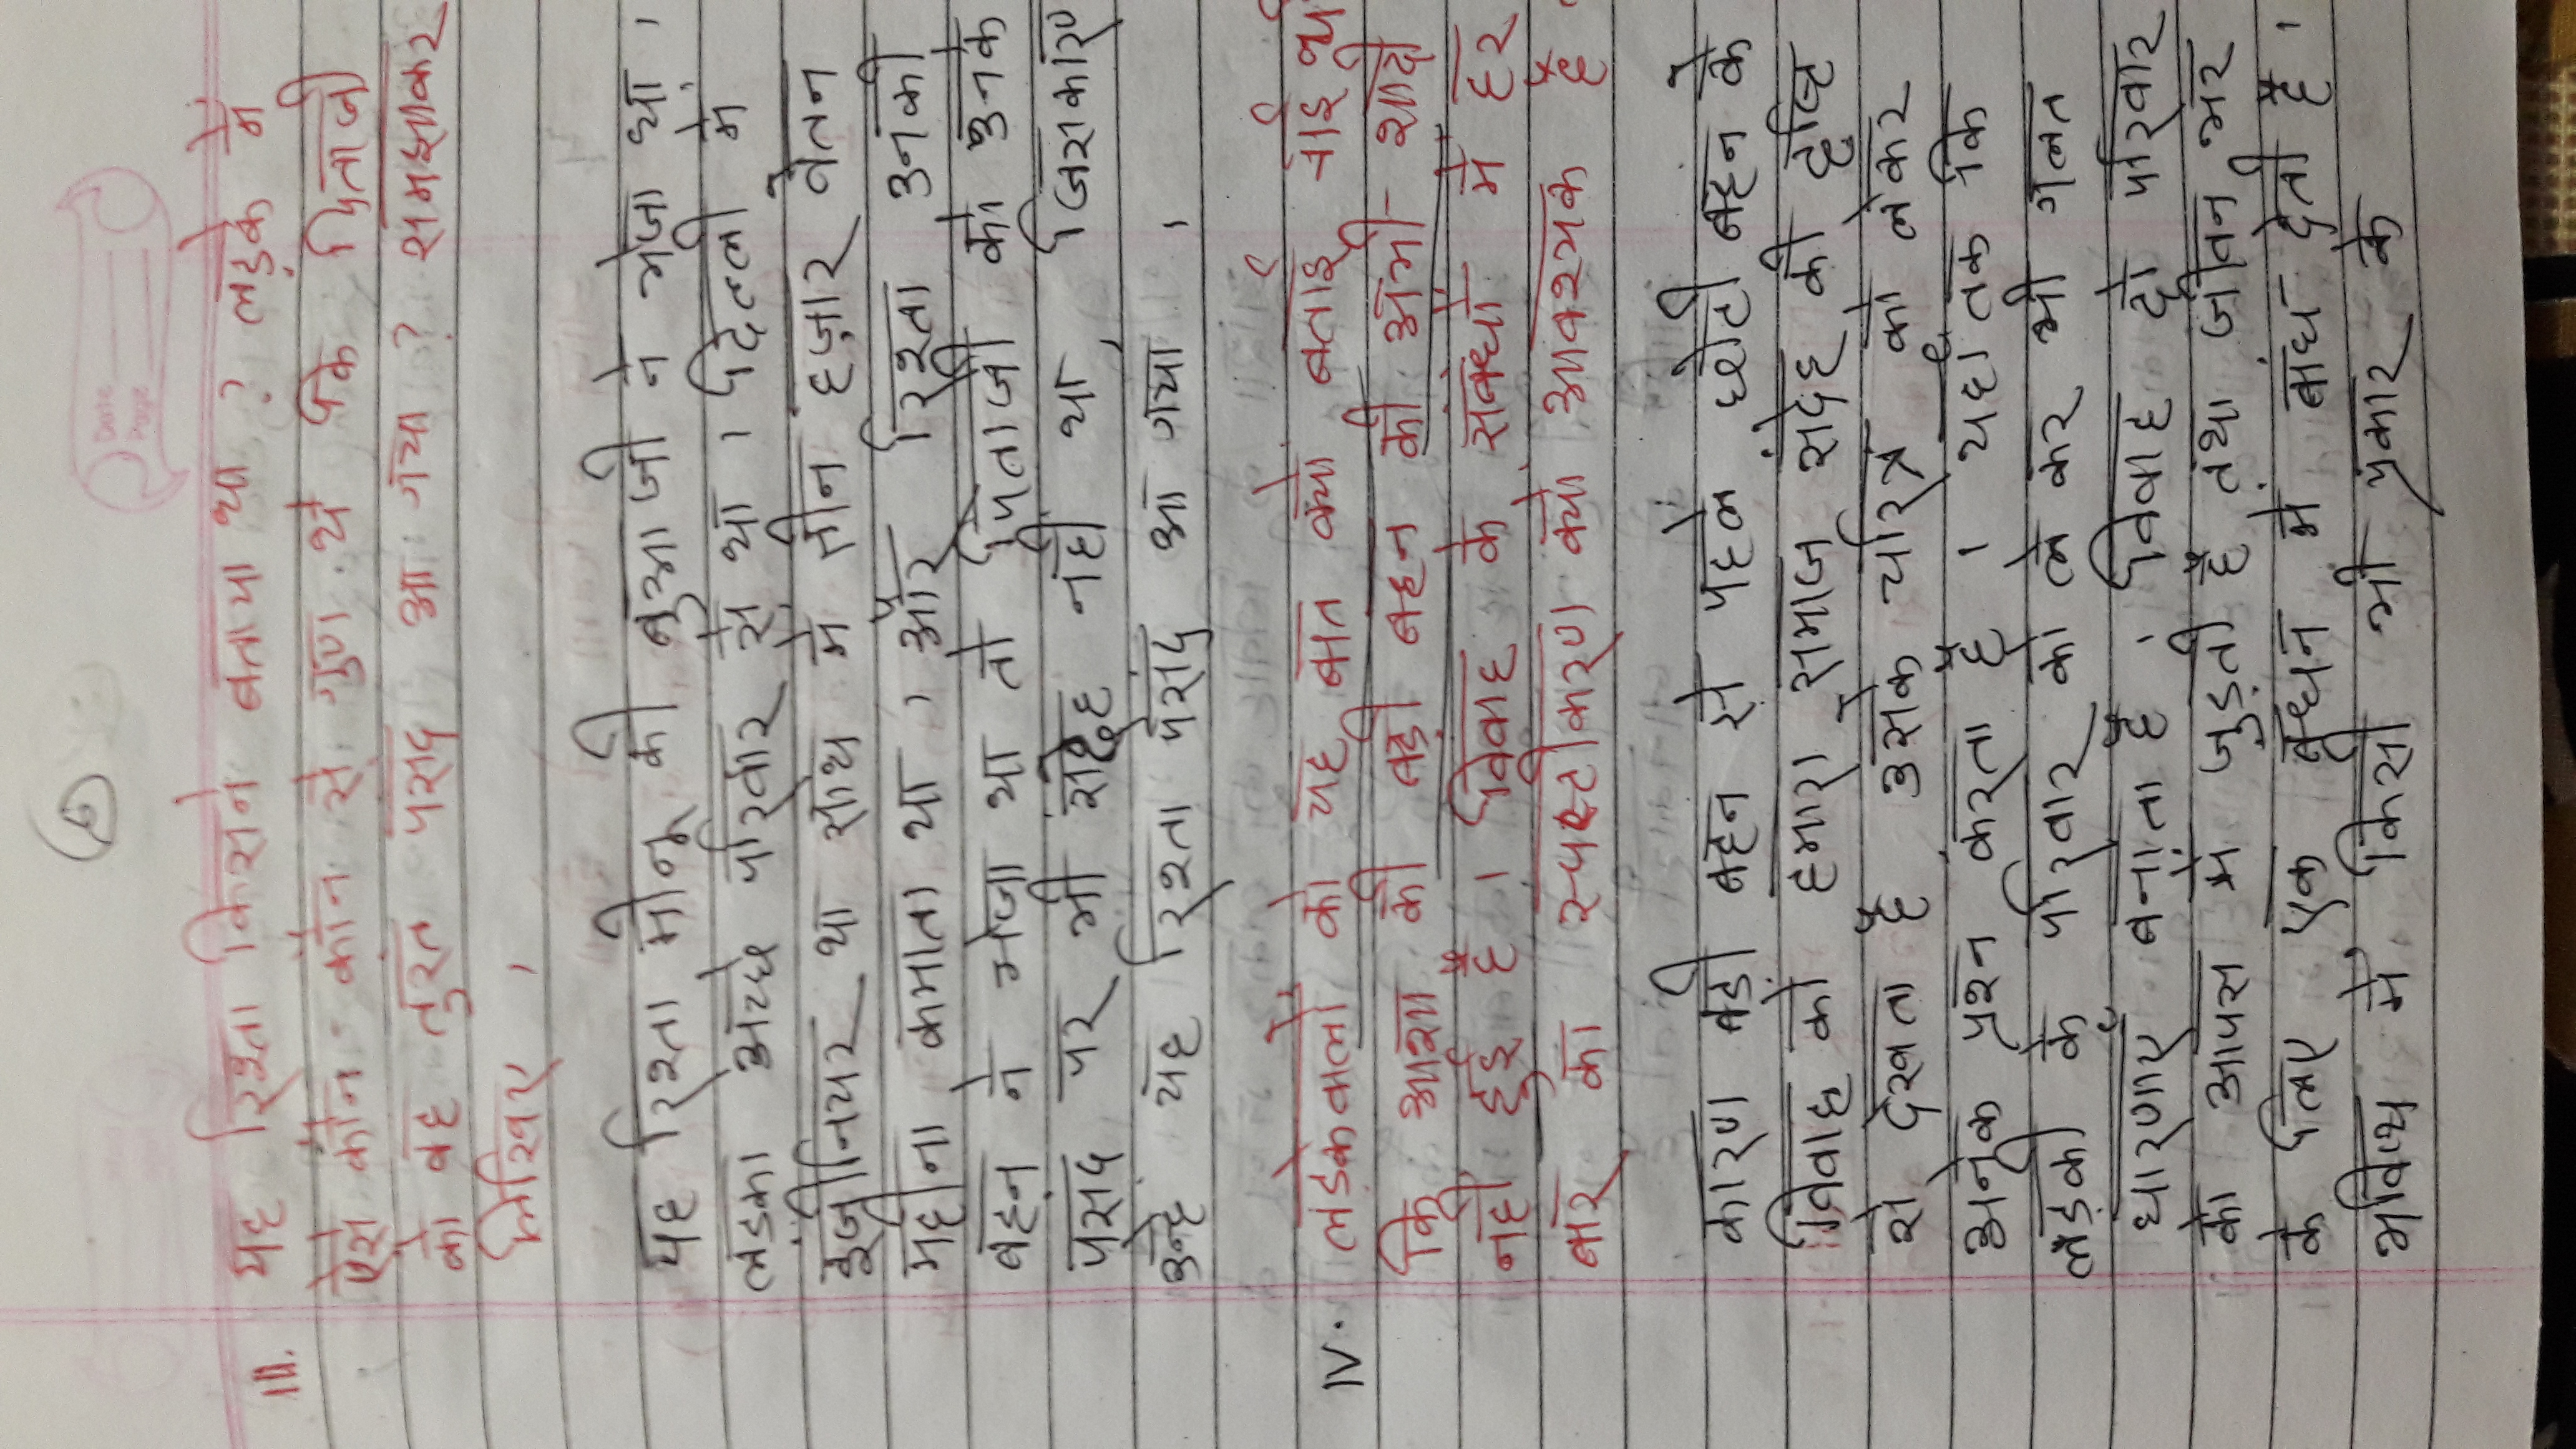 Date
Page
III. यह रिश्ता किसने बताया था ? लड़के में
ऐसे कौन कौन से गुण थे कि पिताजी
को वह तुरंत पसंद आ गया ? समझाकर
लिखिए ।
यह रिश्ता मीनू की बुआजी ने भेजा था ।
लडका अच्छे परिवार से था । दिल्ली में
इंजीनियर था साथ में तीन हज़ार वेतन
महीना कमाता था । और रिश्ता उनकी
बहन ने भेजा था तो पिताजी को उनके
पसंद पर भी संदेह नहीं था जिसकारण
उन्हे यह रिश्ता पसंद आ गया ।
IV. लडकेवालों को यह बात क्यों बताई नाई थी
कि आशा की बड़ी बहन की अभी शादी
नहीं हुई है । विवाह के संबंधों में हर
बार का स्पष्टीकरण क्यों आवश्यक है ?
कारण बड़ी बहन से पहले छोटी बहन के
विवाह को हमारा समाज संदेह की दृष्टि
से देखता है उसके चरित्र को लेकर
अनेक प्रश्न करता है । यहाँ तक कि
लड़की के परिवार को लेकर भी गलत
धारणाएँ बनाता है । विवाह दो परिवार
को आपस में जुड़ती है तथा जीवन भर
के लिए एक बन्धन में बांध देता है ।
भविष्य में किसी भी प्रकार के